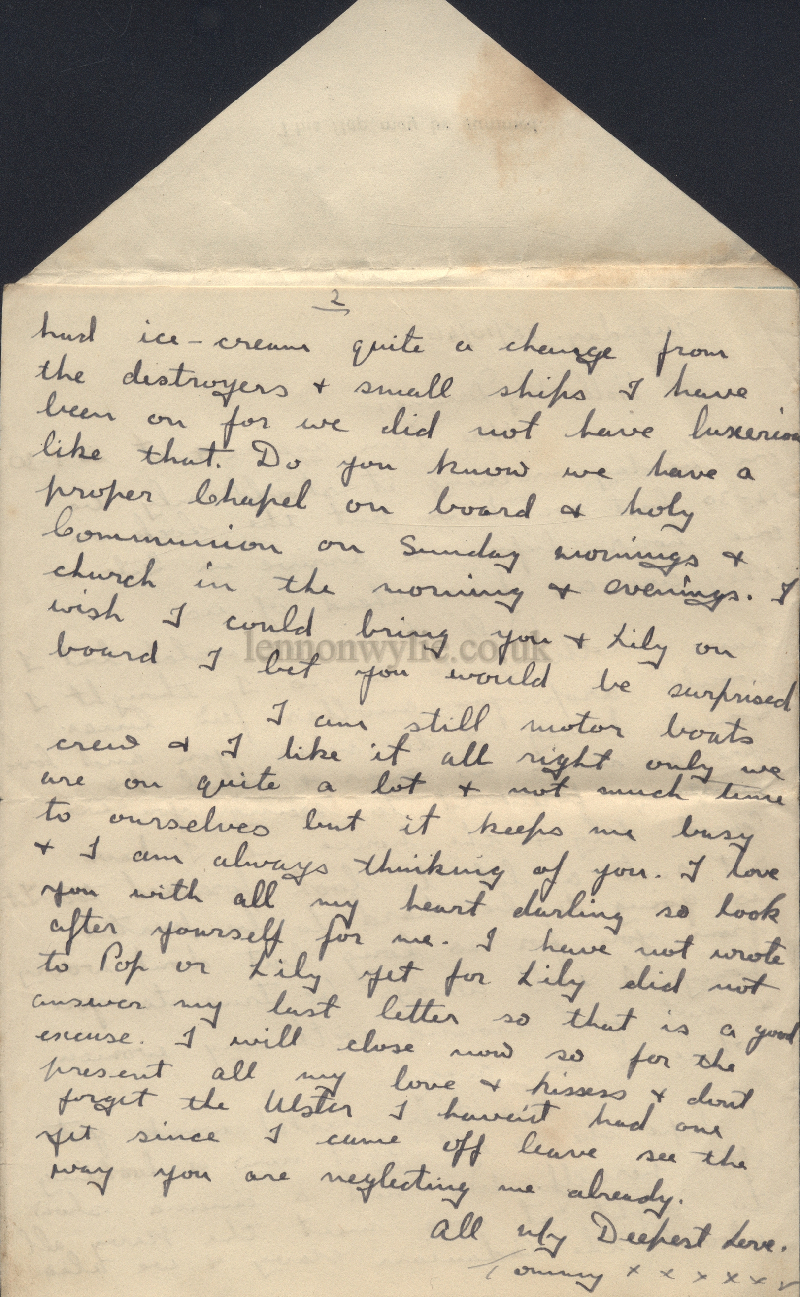 2
had ice-cream quite a change from
the destroyers & small ships I have
been on for we did not have luxeries
like that. Do you know we have a
proper Chapel on board & holy
Communion on Sunday mornings &
church in the morning & evenings. I
wish I could bring you & Lily on
lennonwylie.co.uk
board I bet you would be surprised
I am still motor boats
crew & I like it all right only we
are on quite a lot & not much time
to ourselves but it keeps me busy
& I am always thinking of you. I love
you with all my heart darling so look
after yourself for me. I have not wrote
to Pop or Lily yet for Lily did not
answer my last letter so that is a good
excuse. I will close now so for the
present all my love & kissess & dont
forget the Ulster I haven't had one
yet since I came off leave see the
way you are neglecting me already.
All my Deepest Love.
Tommy x x x x x x